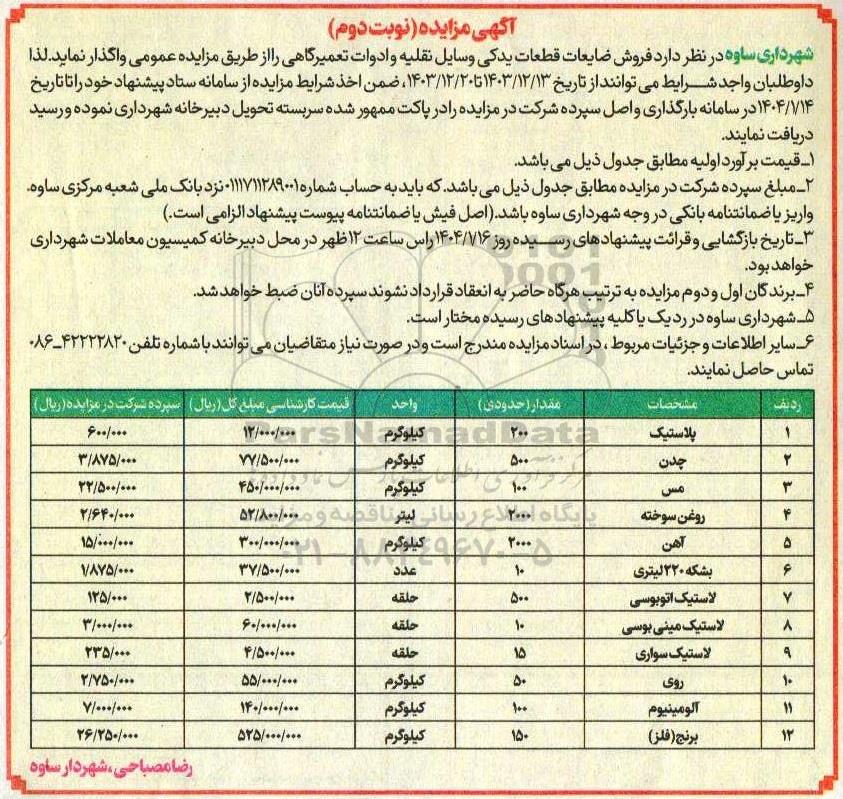 آگهی مزایده (نوبت دوم)
شهرداری ساوه در نظر دارد فروش ضایعات قطعات یدکی وسایل نقلیه و ادوات تعمیرگاهی را از طریق مزایده عمومی واگذار نماید. لذا
داوطلبان واجد شرایط می توانند از تاریخ ۱۴۰۳/۱۲/۱۳ تا ۱۴۰۳/۱۲/۲۰، ضمن اخذ شرایط مزایده از سامانه ستاد پیشنهاد خود را تا تاریخ
۱۴۰۴/۱/۱۴ در سامانه بارگذاری و اصل سپرده شرکت در مزایده را در پاکت ممهور شده سربسته تحویل دبیرخانه شهرداری نموده و رسید
دریافت نمایند.
۱ـ قیمت برآورد اولیه مطابق جدول ذیل می باشد.
۲ـ مبلغ سپرده شرکت در مزایده مطابق جدول ذیل می باشد. که باید به حساب شماره ۰۱۱۱۷۱۱۲۸۹۰۰۱ نزد بانک ملی شعبه مرکزی ساوه.
واریز یا ضمانتنامه بانکی در وجه شهرداری ساوه باشد.(اصل فیش یا ضمانتنامه پیوست پیشنهاد الزامی است.)
۳ـ تاریخ بازگشایی و قرائت پیشنهادهای رسیده روز ۱۴۰۴/۱/۱۶ راس ساعت ۱۲ ظهر در محل دبیرخانه کمیسیون معاملات شهرداری
خواهد بود.
۴ـ برندگان اول و دوم مزایده به ترتیب هرگاه حاضر به انعقاد قرارداد نشوند سپرده آنان ضبط خواهد شد.
۵ـ شهرداری ساوه در رد یک یا کلیه پیشنهادهای رسیده مختار است.
۶ـ سایر اطلاعات و جزئیات مربوط ، در اسناد مزایده مندرج است و در صورت نیاز متقاضیان می توانند با شماره تلفن ۴۲۲۲۲۸۲۰ـ۰۸۶
تماس حاصل نمایند.
ردیف مشخصات مقدار(حدودی) واحد قیمت کارشناسی مبلغ کل(ریال) سپرده شرکت در مزایده(ریال)
۱ پلاستیک ۲۰۰ کیلوگرم ۱۲/۰۰۰/۰۰۰ ۶۰۰/۰۰۰
۲ چدن ۵۰۰ کیلوگرم ۷۷/۵۰۰/۰۰۰ ۳/۸۷۵/۰۰۰
۳ مس ۱۰۰ کیلوگرم ۴۵۰/۰۰۰/۰۰۰ ۲۲/۵۰۰/۰۰۰
۴ روغن سوخته ۲۲۰۰ لیتر ۵۲/۸۰۰/۰۰۰ ۲/۶۴۰/۰۰۰
۵ آهن ۲۰۰۰ کیلوگرم ۳۰۰/۰۰۰/۰۰۰ ۱۵/۰۰۰/۰۰۰
۶ بشکه ۲۲۰ لیتری ۱۰ عدد ۳۷/۵۰۰/۰۰۰ ۱/۸۷۵/۰۰۰
۷ لاستیک اتوبوسی ۵۰۰ حلقه ۲/۵۰۰/۰۰۰ ۱۲۵/۰۰۰
۸ لاستیک مینی بوسی ۱۰ حلقه ۶۰/۰۰۰/۰۰۰ ۳/۰۰۰/۰۰۰
۹ لاستیک سواری ۱۵ حلقه ۴/۵۰۰/۰۰۰ ۲۳۵/۰۰۰
۱۰ روی ۵۰ کیلوگرم ۵۵/۰۰۰/۰۰۰ ۲/۷۵۰/۰۰۰
۱۱ آلومینیوم ۱۰۰ کیلوگرم ۱۴۰/۰۰۰/۰۰۰ ۷/۰۰۰/۰۰۰
۱۲ برنج(فلز) ۱۵۰ کیلوگرم ۵۲۵/۰۰۰/۰۰۰ ۲۶/۲۵۰/۰۰۰
رضا مصباحی، شهردار ساوه
ParsNamadData
پایگاه اطلاع رسانی مناقصه و مزایده
۰۲۱-۸۸۳۴۹۶۷۰-۵